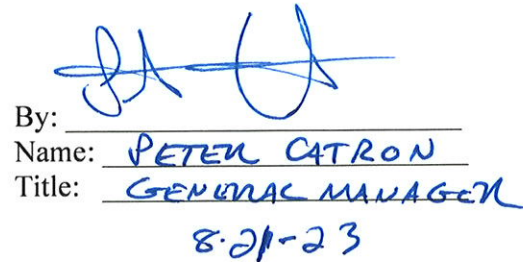 By:
Name: PETER CATRON
Title: GENERAL MANAGER
8-21-23